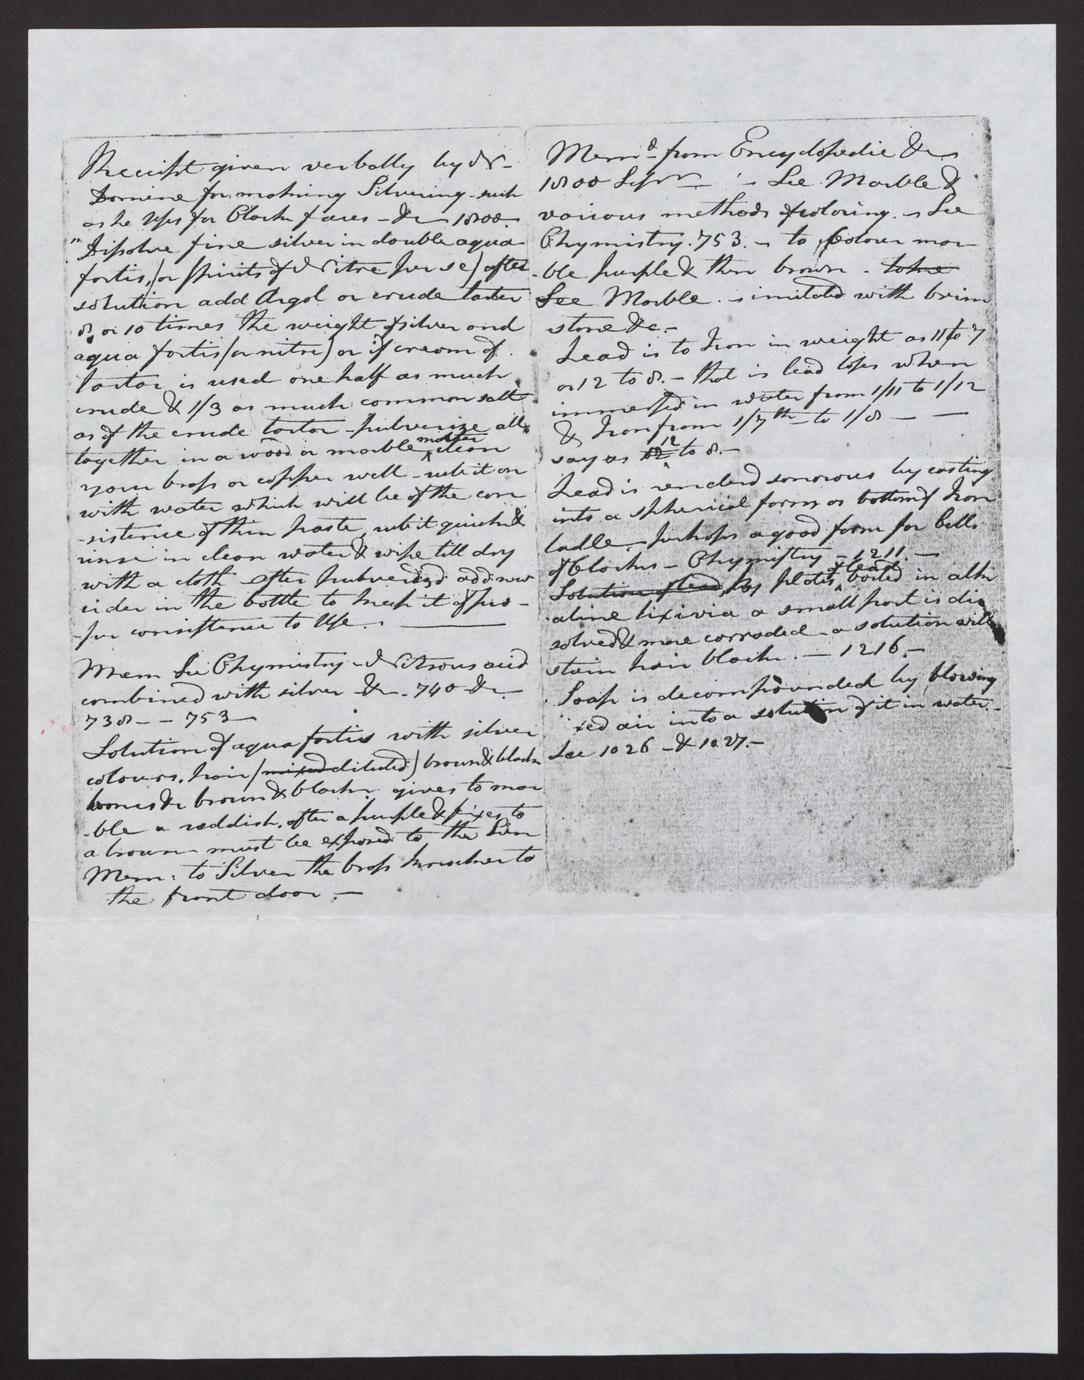 Receipt given verbally by Nr-
Domine for making Silvering such
as he Uses for Clock faces - &c 1800
"Dissolve fine silver in double aqua
fortis, (or spirits of Nitre per se) after
solution add Argol or crude tarter
8, or 10 times the weight of silver and
aqua fortis (or nitre) or if cream of
tartar is used one half as much
crude & 1/3 as much common salt
as of the crude tartar - pulverize all
together in a wood or marble morter clean
your brass or copper well - rub it on
with water which will be of the con
-sistence of thin paste, rub it quick &
rinse in clean water & wipe till dry
with a cloth after pulverized add new
cider in the bottle to keep it of pro-
-per consistence to Use
Mem See Chymistry - Nitrous acid
combined with silver &c. 740 &c
738 - - 753
Solution of aquafortis with silver
colours, hair (mixed diluted) brown & black
bones &c brown & black gives to mar
-ble a reddish, after a purple & fixes to
a brown - must be exposed to the Sun
Mem: to Silver the brass knocker to
the front door. -
Memd from Encyclopedie &c
1800 Septr - See Marble &
various methods of coloring. See
Chymistry. 753. - to colour mar-
-ble purple & then brown.
See Marble. imitated with brim
stone &c. -
Lead is to Iron in weight as 11 to 7
or 12 to 8. - that is lead loses when
immersed in water from 1/11 to 1/12
& Iron from 1/7th to 1/8 - -
say as 12 to 8. -
Lead is renderd sonorous by casting
into a spherical form or bottom of Iron
ladle - perhaps a good form for bells
of Clocks - Chymistry - 1211 -
Solution of lead, by plates of lead boiled in alk
-aline lixivia a small part is dis
solved & more corroded - a solution will
stain hair black. - 1216. -
Soap is decompounded by blowing
fixed air into a solution of it in water -
See 1026 - & 1027. -